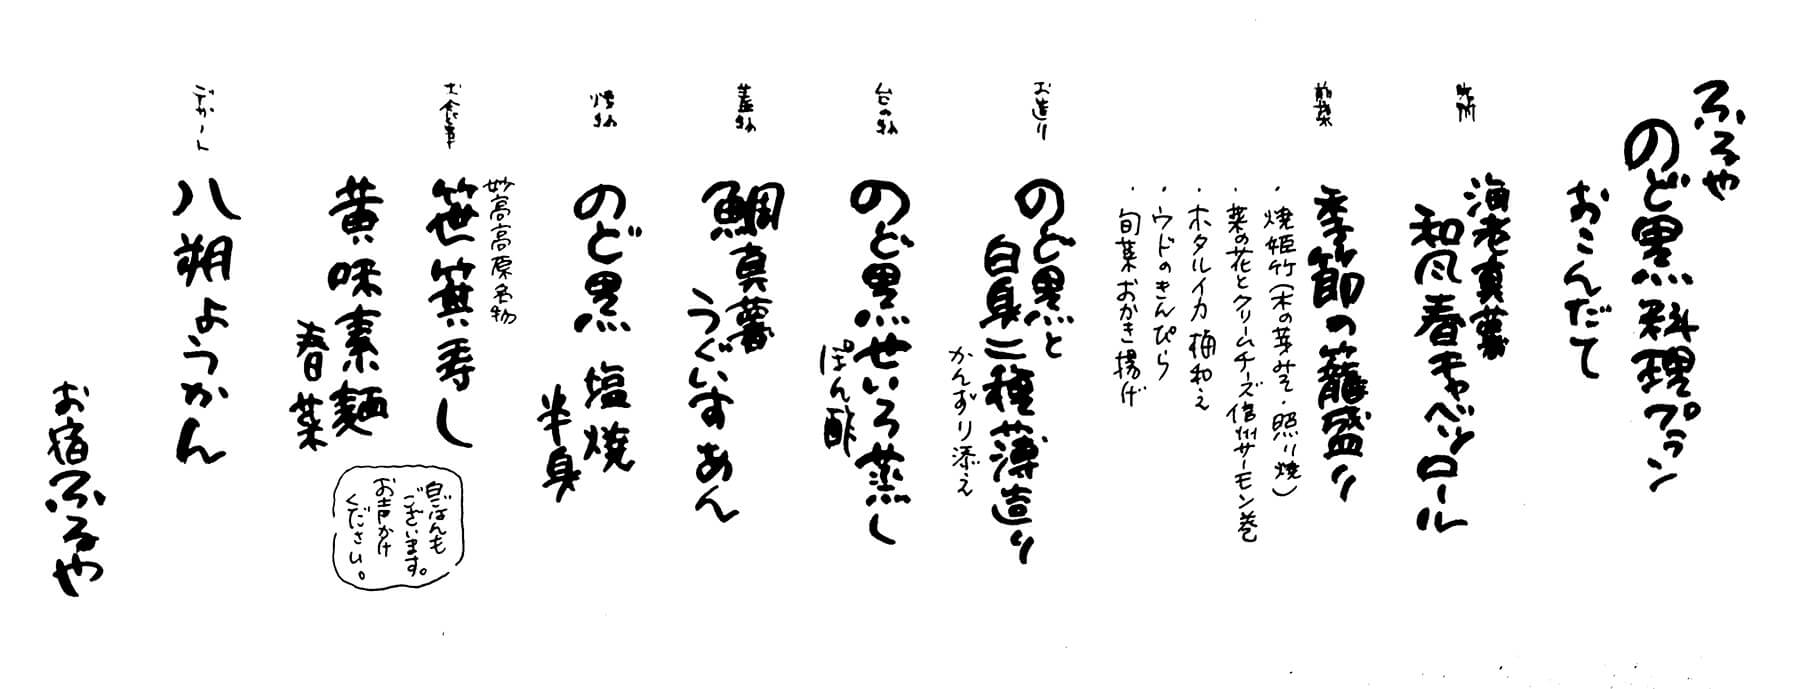 ふるや
のど黒料理プラン
おこんだて
海老真薯
和風春キャベツロール
前菜
季節の籠盛り
・焼姫竹(木の芽みそ・照り焼)
・菜の花とクリームチーズ信州サーモン巻
・ホタルイカ梅和え
・ウドのきんぴら
・旬菜おかき揚げ
お造り
のど黒と
白身二種薄造り
かんずり添え
台の物
のど黒せいろ蒸し
ぽん酢
蓋物
鯛真薯
うぐいすあん
焼物
のど黒 塩焼
半身
お食事
妙高高原名物
笹箕寿し
黄味素麺
春菜
白ごはんも
ございます。
お声かけ
ください。
デザート
八朔ようかん
お宿ふるや